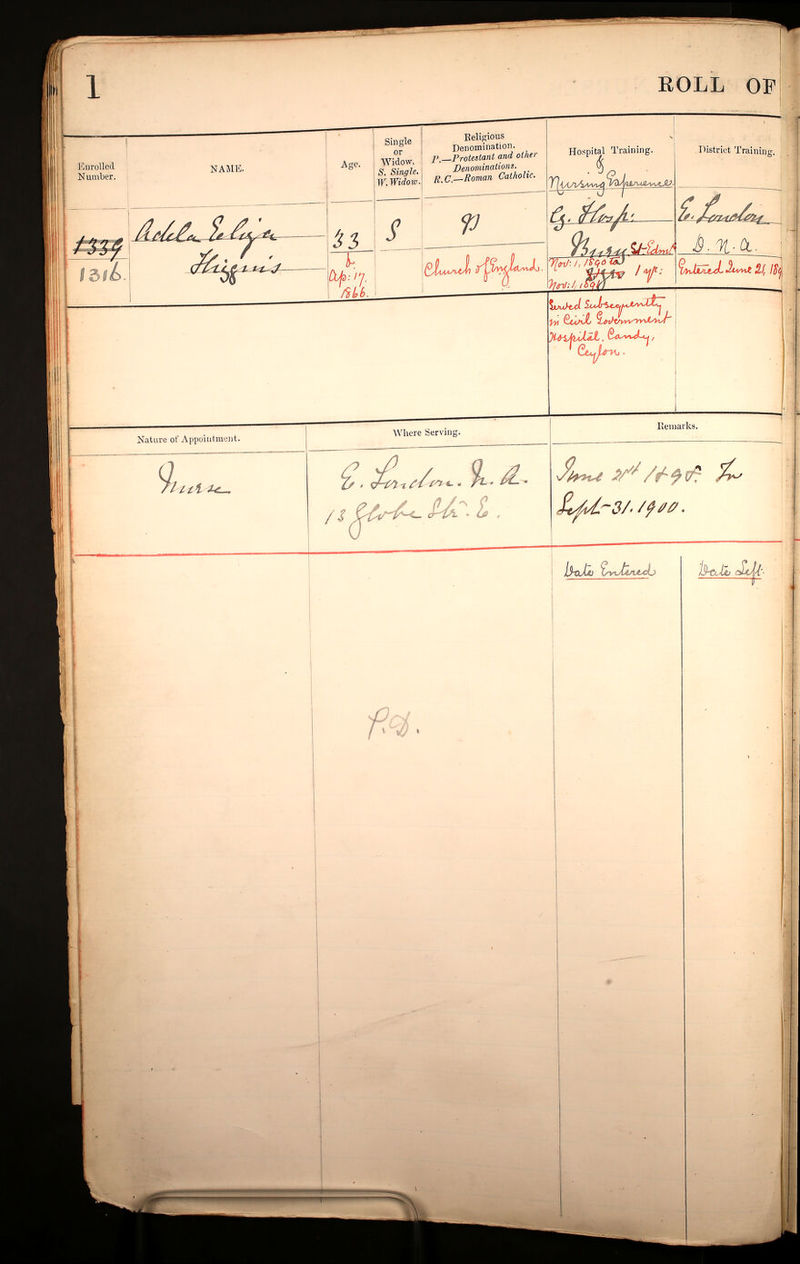 1
ROLL OF
Enrolled Number.
NAME.
Age.
Single or Widow.
S. Single.
W. Widow.
Religious Denomination.
P.—Protestant and other Denominations.
R.C.—Roman Catholic.
Hospital Training.
& Nursing Experience
District Training.
1339
1316.
Adela Eliza
Higgins
33
b.
Ap: 17.
1866.
S
P
Church of England.
Cg. Hosp:
Bury St Edms
Nov: 1, 1890 to
1 yr:
Nov: 1, 1891
E. London
D. N. A.
Entered June 21, 189
Served Subsequently
in Civil Government
Hospital, Candy,
Ceylon.
Nature of Appointment.
Where Serving.
Remarks.
Nurse
E. London. N. A.
13 Globe Str. E.
June 21st 1898. To
Sept 31. 1900.
Date Entered
Date Left
P.D.